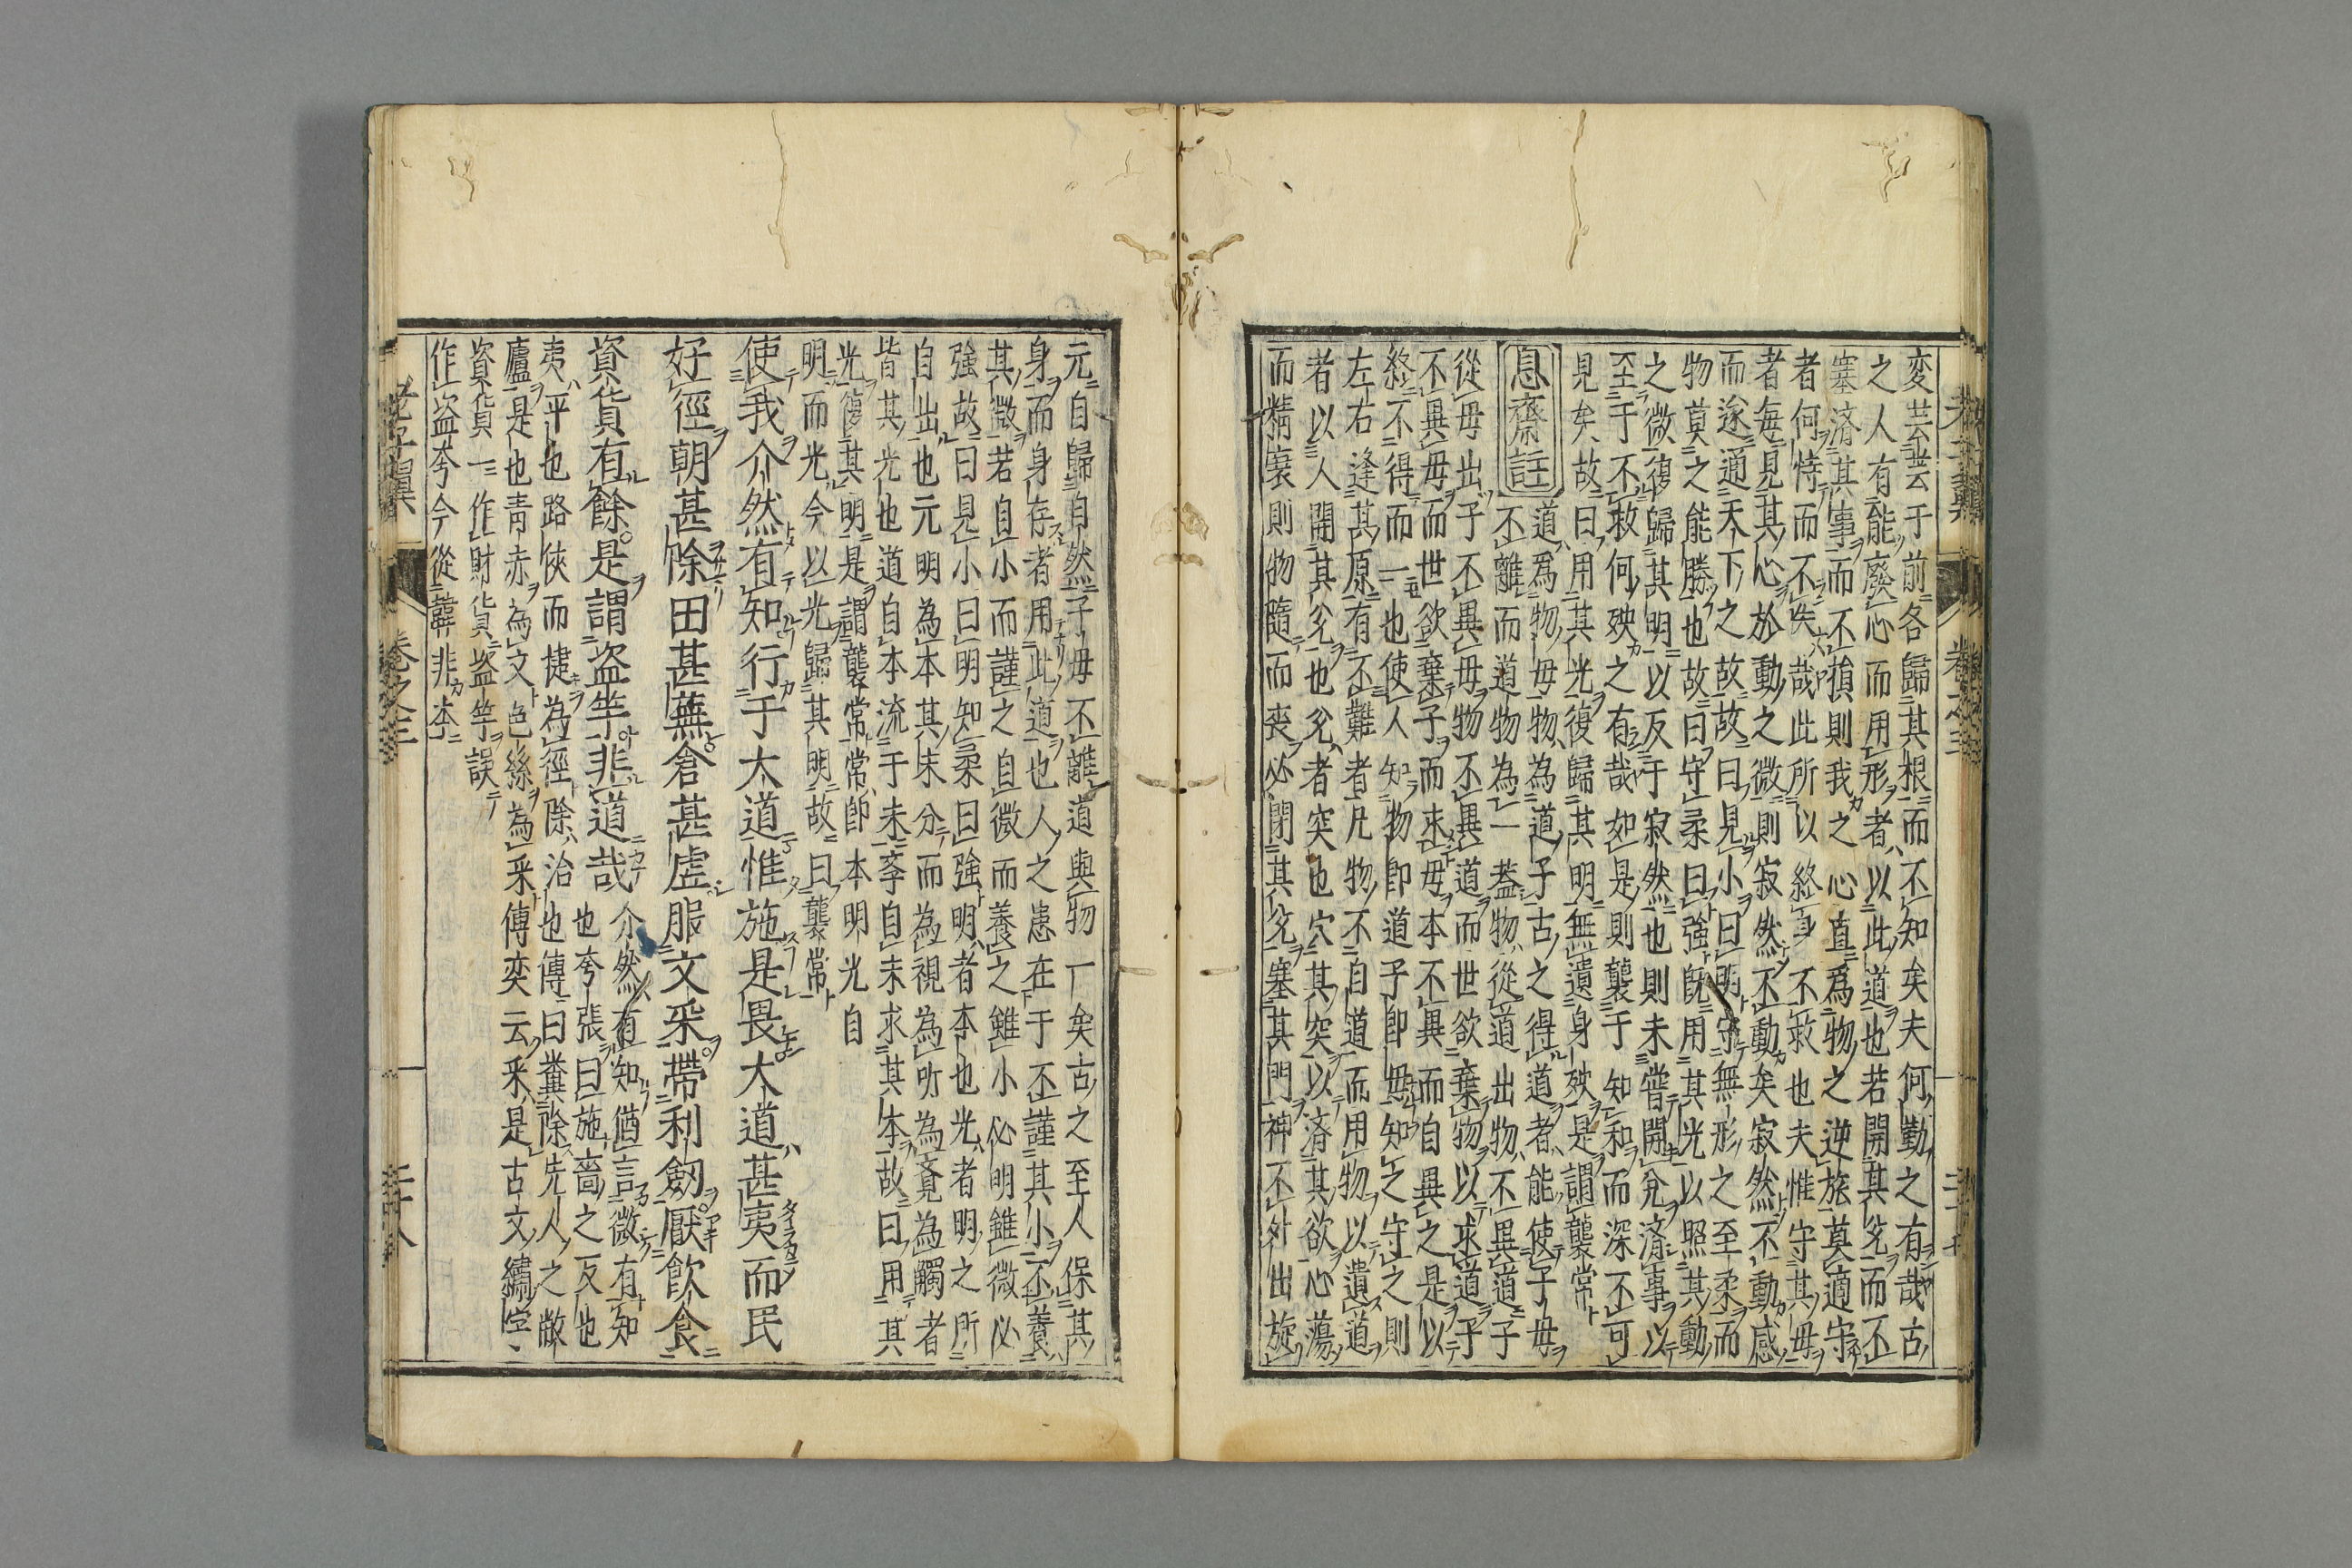 変芸芸于前各歸其根而不知矣夫何勤之有哉古
之人有能廢心而用形者以此道也若開其兌而不
塞済其事而不損則我之心直爲物之逆旅莫適守
者何恃而不失哉此所以終身不救也夫惟守其母
者每見其心於動之微則寂然不動矣寂然不動感
而遂通天下之故故曰見小曰明守無形之至柔而
物莫之能勝也故曰守柔曰強既用其光以照其動
之微復歸其明以反于寂然也則未嘗開兌済事以
至于不救何殃之有哉如是則襲于知和而深不可
見矣故曰用其光復歸其明無遺身殃是謂襲常
息齋註 道為物母物為道子古之得道者能使子母
不離而道物為一蓋物從道出物不異道子
從母出子不異母物不異道而世欲棄物以求道于
不異母而世欲棄子而求母本不異而自異之是以
終不得而一也使人知物即道子即母知之守之則
左右逢其原有不難者凡物不自道而用物以遺道
者以人開其兌也兌者突也穴其突以済其欲心蕩
而精衰則物隨而喪必閉其兌塞其門神不外出旋
元自歸自然子母不離道與物一矣古之至人保其
身而身存者用此道也人之患在于不謹其小不養
其微若自小而謹之自微而養之雖小必明雖微必
強故曰見小曰明知柔曰強明者本也光者明之所
自出也元明為本其末分而為視為听為覚為觸者
皆其光也道自本流于末李自末求其本故曰用其
光復其明是謂襲常常即本明光自
明而光今以光歸其明故曰襲常
使我介然有知行于大道惟施是畏大道甚夷而民
好徑朝甚除田甚蕪倉甚虚服文采帶利劔厭飲食
資貨有餘是謂盗竽非道哉 介然有知偤言微有知
也夸張曰施嗇之反也
夷平也路俠而捷為徑除治也傳曰糞除先人之敝
廬是也青赤為文色絲為采傅奕云采是古文繡字
資貨一作財貨盗竽誤
作盗夸今從韓非本
老子翼 卷之三 三十八